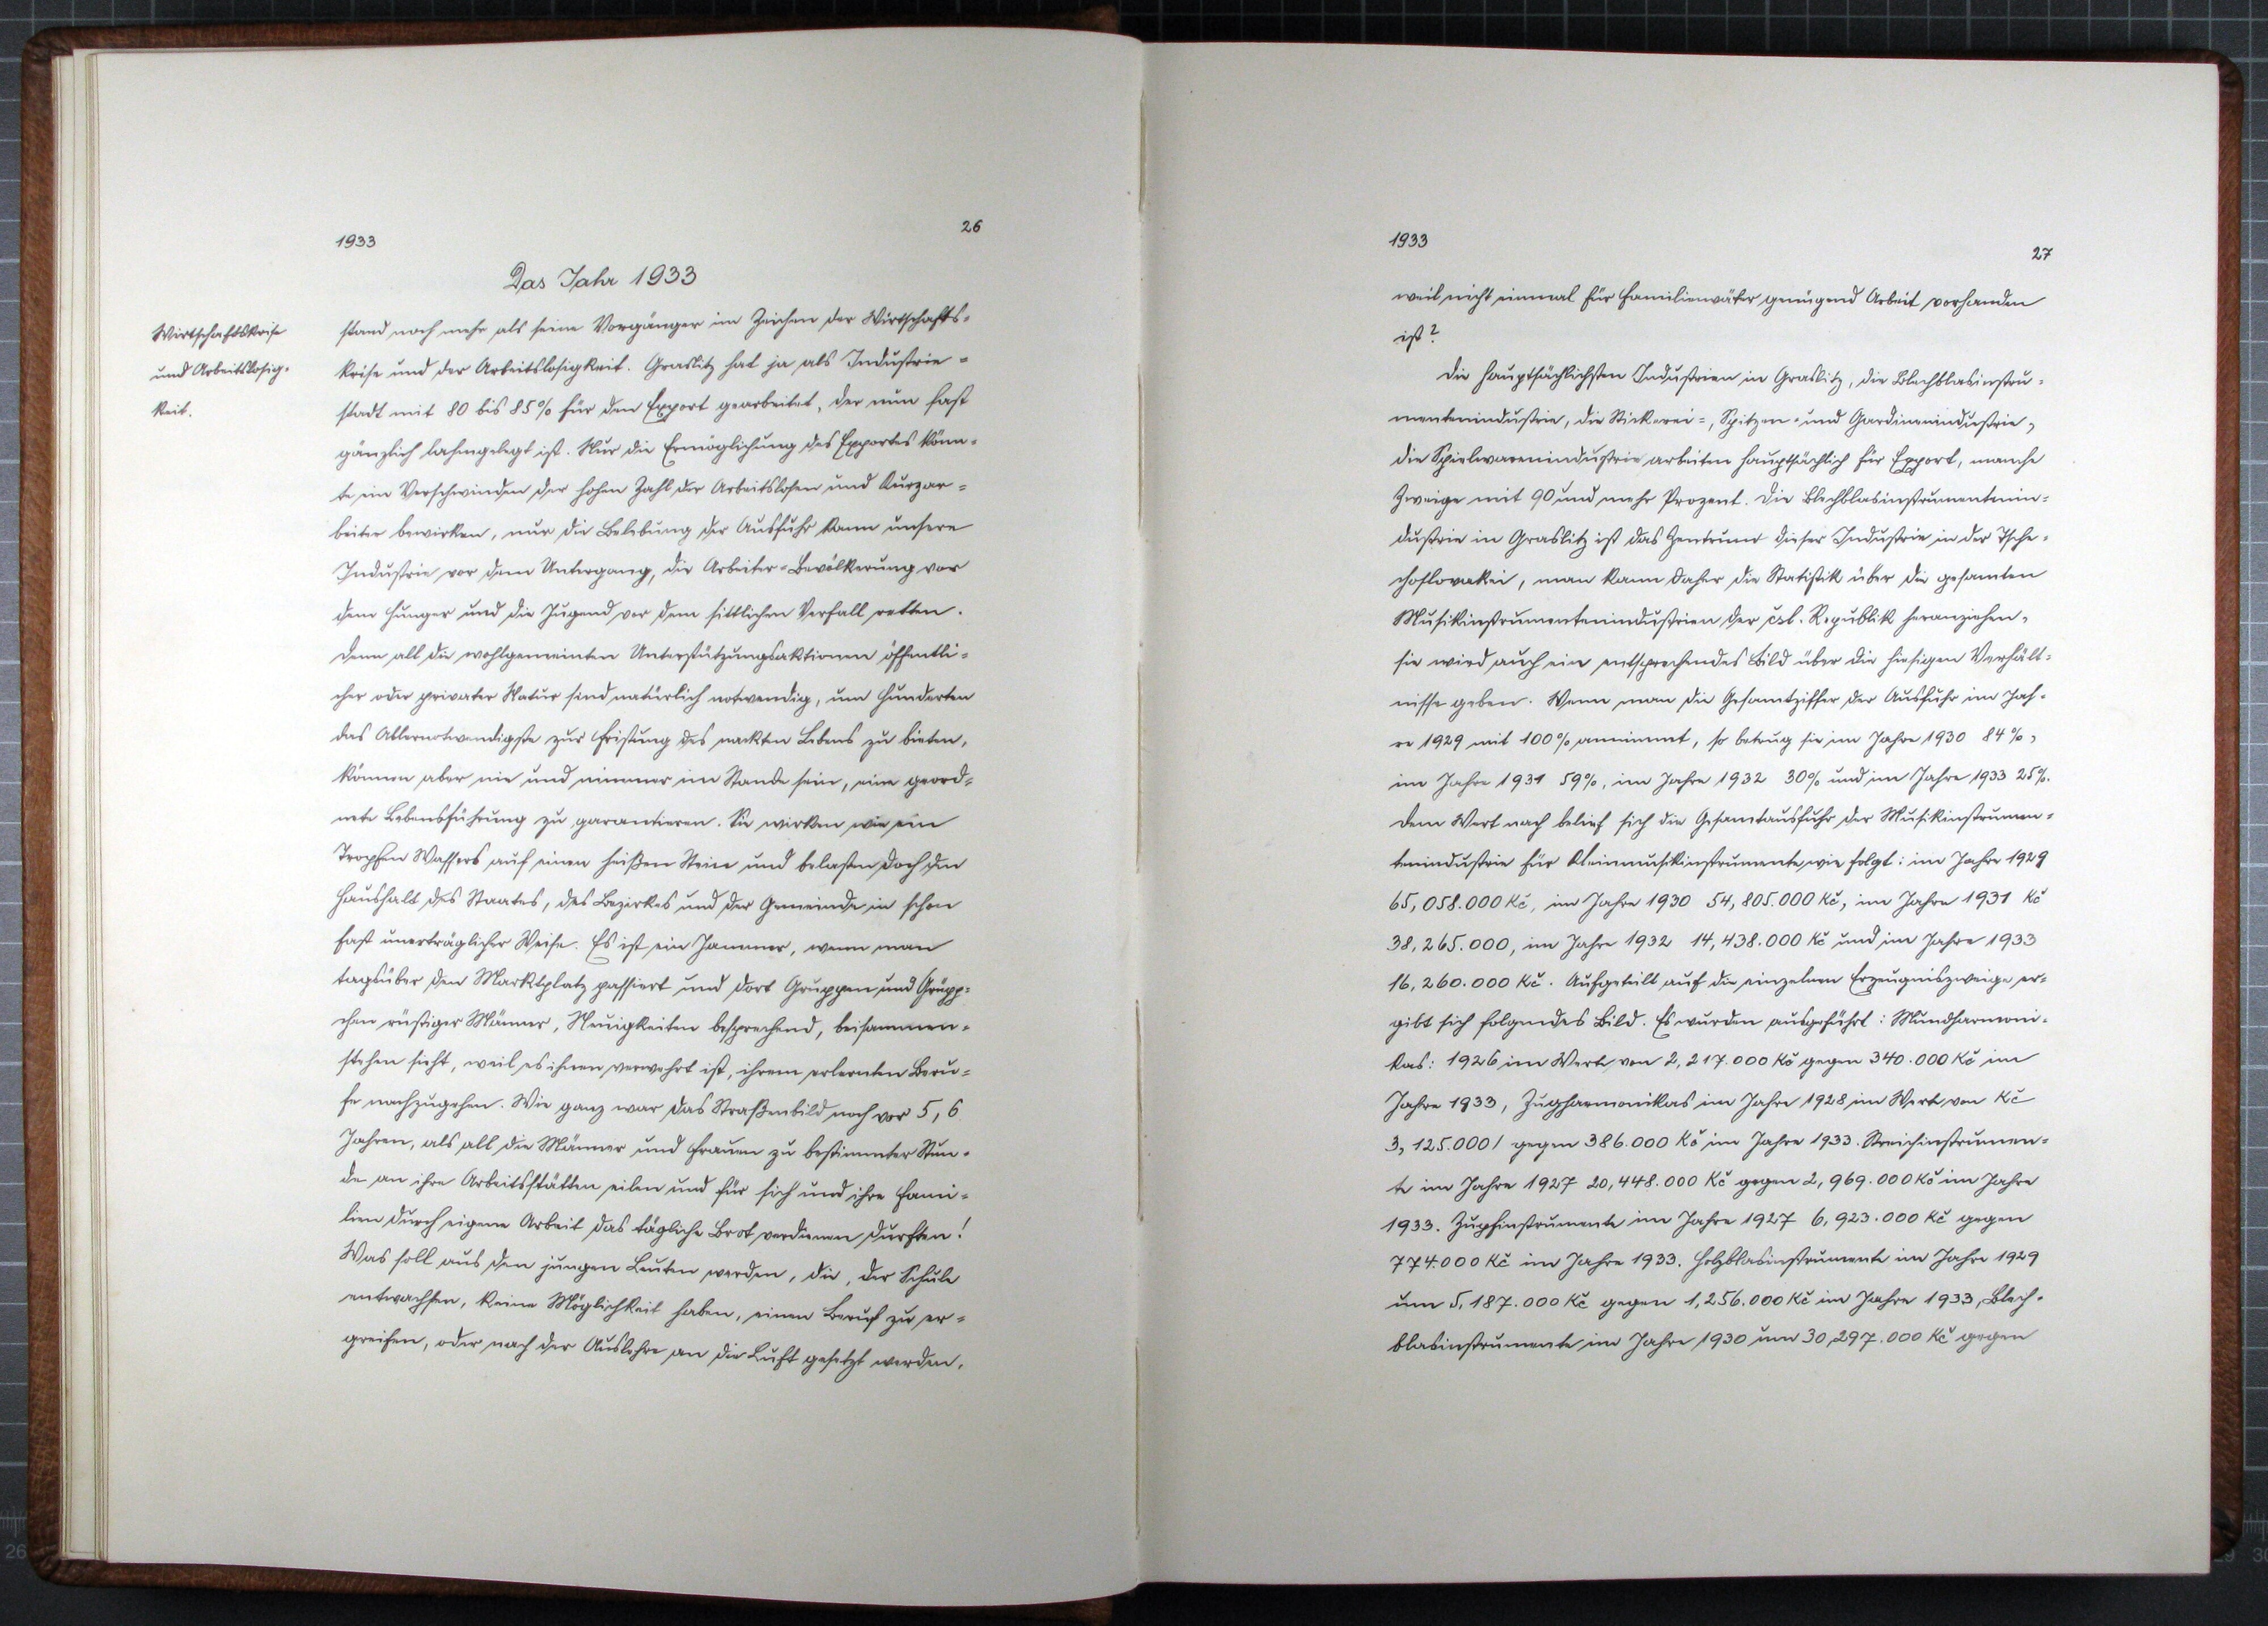 1933
26
Das Jahr 1933
Wirtschaftskrise
und Arbeitslosig-
keit.
stand noch mehr als seine Vorgänger im Zeichen der Wirtschafts-
krise und der Arbeitslosigkeit. Graslitz hat ja als Industrie-
stadt mit 80 bis 85% für den Export gearbeitet, der nun fast
gänzlich lahmgelegt ist. Nur die Ermöglichung des Exportes könn-
te ein Verschwinden der hohen Zahl der Arbeitslosen und Kurzar-
beiter bewirken, nur die Belebung der Ausfuhr kann unsere
Industrie vor dem Untergang, die Arbeiter-Bevölkerung vor
dem Hunger und die Jugend vor dem sittlichen Verfall retten.
Denn all die wohlgemeinten Unterstützungsaktionen öffentli-
cher oder privater Natur sind natürlich notwendig, um Hunderten
das Allernotwendigste zur Fristung des nackten Lebens zu bieten,
können aber nie und nimmer im Stande sein, eine geord-
nete Lebensführung zu garantieren. Sie wirken wie ein
Tropfen Wassers auf einen heißen Stein und belasten doch den
Haushalt des Staates, des Bezirkes und der Gemeinde in schon
fast unerträglicher Weise. Es ist ein Jammer, wenn man
tagsüber den Marktplatz passiert und dort Gruppen und Grüpp-
chen rüstiger Männer, Neuigkeiten besprechend, beisammen-
stehen sieht, weil es ihnen verwehrt ist, ihrem erlernten Beru-
fe nachzugehen. Wie ganz war das Straßenbild noch vor 5, 6
Jahren, als all die Männer und Frauen zu bestimmter Stun-
de an ihre Arbeitsstätten eilen und für sich und ihre Fami-
lien durch eigene Arbeit das tägliche Brot verdienen durften!
Was soll aus den jungen Leuten werden, die, der Schule
entwachsen, keine Möglichkeit haben, einen Beruf zu er-
greifen, oder nach der Auslehre an die Luft gesetzt werden,
1933
27
weil nicht einmal für Familienväter genügend Arbeit vorhanden
ist?
Die hauptsächlichsten Industrien in Graslitz, die Blechblasinstru-
mentenindustrie, die Stickerei-, Spitzen- und Gardinenindustrie,
die Spielwarenindustrie arbeiten hauptsächlich für Export, manche
Zweige mit 90 und mehr Prozent. Die Blechblasinstrumentenin-
dustrie in Graslitz ist das Zentrum dieser Industrie in der Tsche-
choslovakei, man kann daher die Statistik über die gesamten
Musikinstrumentenindustrien der čsl. Republik heranziehen,
sie wird auch ein entsprechendes Bild über die hiesigen Verhält-
nisse geben. Wenn man die Gesamtziffer der Ausfuhr im Jah-
re 1929 mit 100% annimmt, so betrug sie im Jahre 1930 84%,
im Jahre 1931 59%, im Jahre 1932 30% und im Jahre 1933 25%.
Dem Wert nach belief sich die Gesamtausfuhr der Musikinstrumen-
tenindustrie für Kleinmusikinstrumente wie folgt: im Jahre 1929
65,058.000 Kč, im Jahre 1930 54,805.000 Kč, im Jahre 1931 Kč
38,265.000, im Jahre 1932 14,438.000 Kč und im Jahre 1933
16,260.000 Kč. Aufgeteilt auf die einzelnen Erzeugniszweige er-
gibt sich folgendes Bild. Es wurden ausgeführt: Mundharmoni-
kas: 1926 im Werte von 2,217.000 Kč gegen 340.000 Kč im
Jahre 1933, Zugharmonikas im Jahre 1928 im Werte von Kč
3,125.000/ gegen 386.000 Kč im Jahre 1933. Streichinstrumen-
te im Jahre 1927 20,448.000 Kč gegen 2,969.000 Kč im Jahre
1933. Zupfinstrumente im Jahre 1927 6,923.000 Kč gegen
774.000 Kč im Jahre 1933. Holzblasinstrumente im Jahre 1929
um 5,187.000 Kč gegen 1,256.000 Kč im Jahre 1933, Blech-
blasinstrumente im Jahre 1930 um 30,297.000 Kč gegen